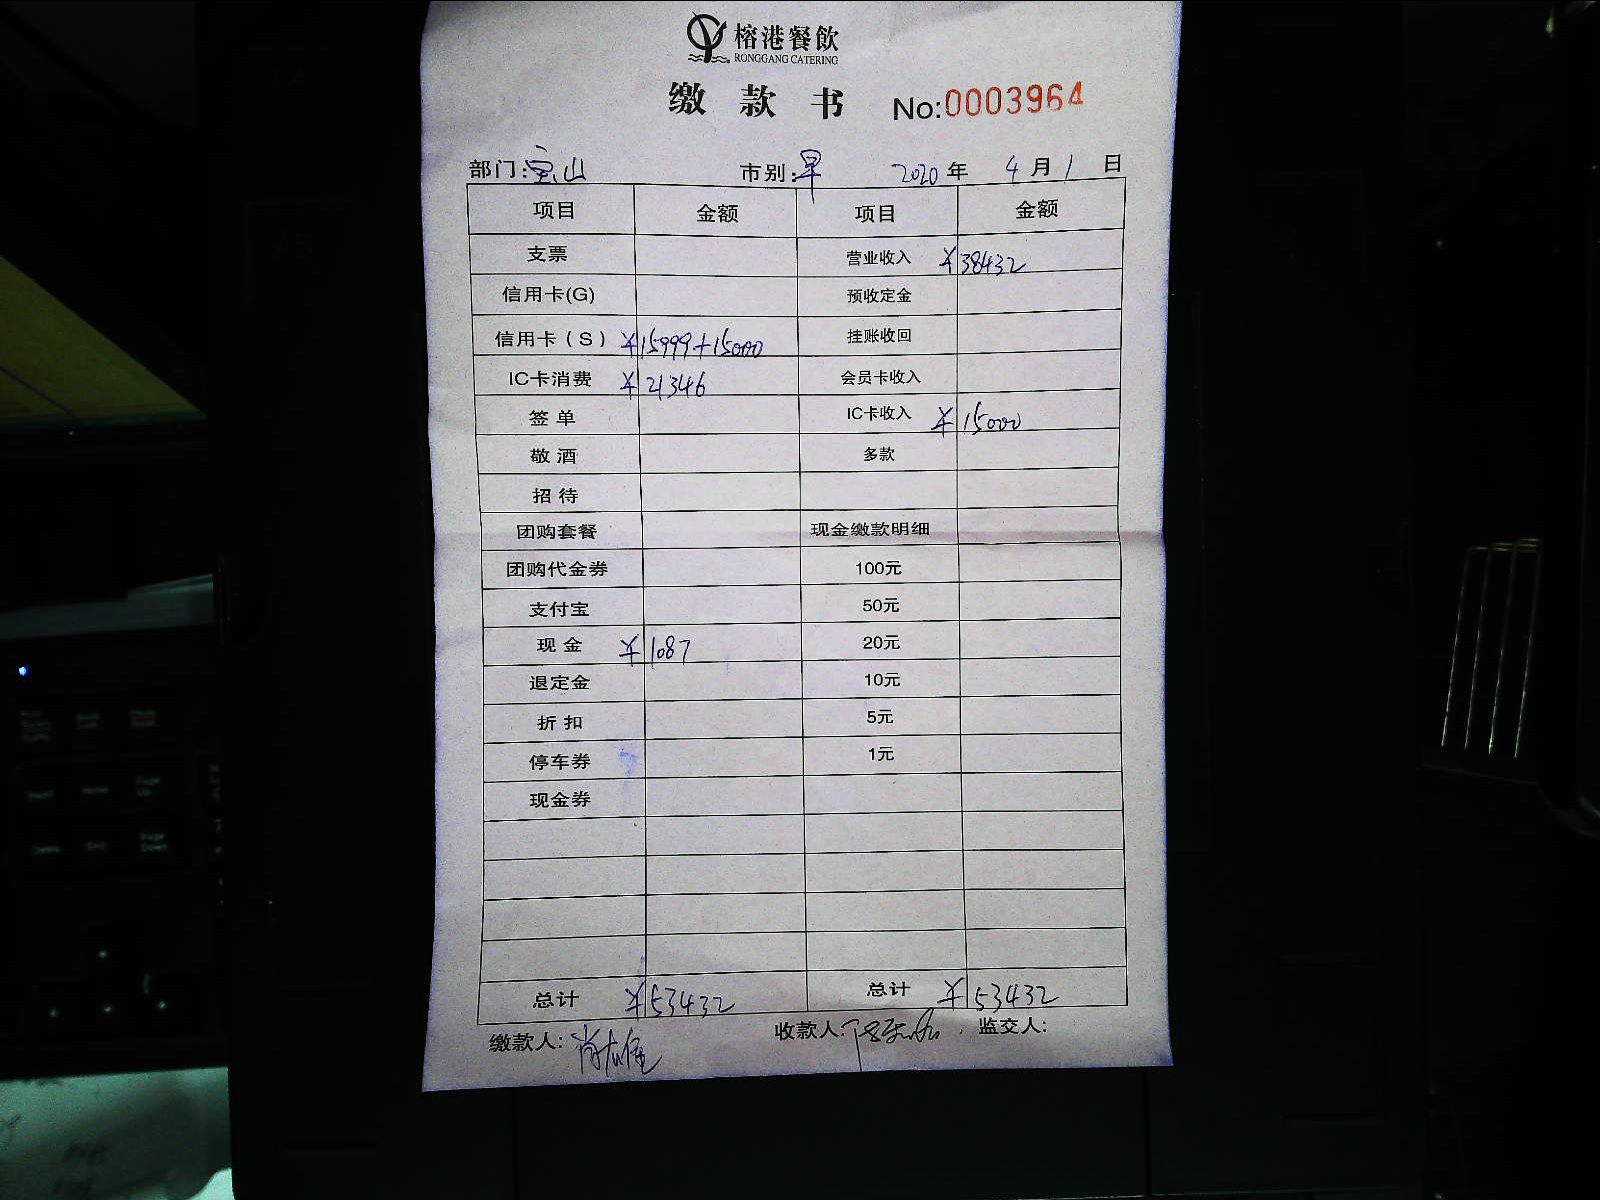 榕港餐飲
RONGGANG CATERING
缴 款 书 No:0003964
部门:宝山 市别:早 2020年 4月1日
项目 金额 项目 金额
支票 营业收入 ¥38432
信用卡(G) 预收定金
信用卡(S) ¥15999+15000 挂账收回
IC卡消费 ¥21346 会员卡收入
签 单 IC卡收入 ¥15000
敬 酒 多款
招 待
团购套餐 现金缴款明细
团购代金券 100元
支付宝 50元
现 金 ¥1087 20元
退定金 10元
折 扣 5元
停车券 1元
现金券
总计 ¥53432 总计 ¥53432
缴款人: 收款人: 监交人: